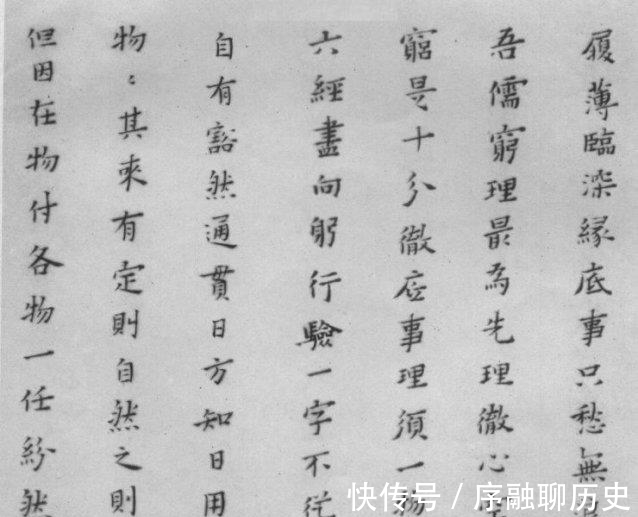 履薄臨深緣底事只愁無
吾儒窮理最為先理徹心
窮是十分徹底事理須一物
六經盡向躬行驗一字不從
自有豁然通貫日方知日用
物〻其來有定則自然之則
但因在物付各物一任紛然
快传号 / 序融聊历史